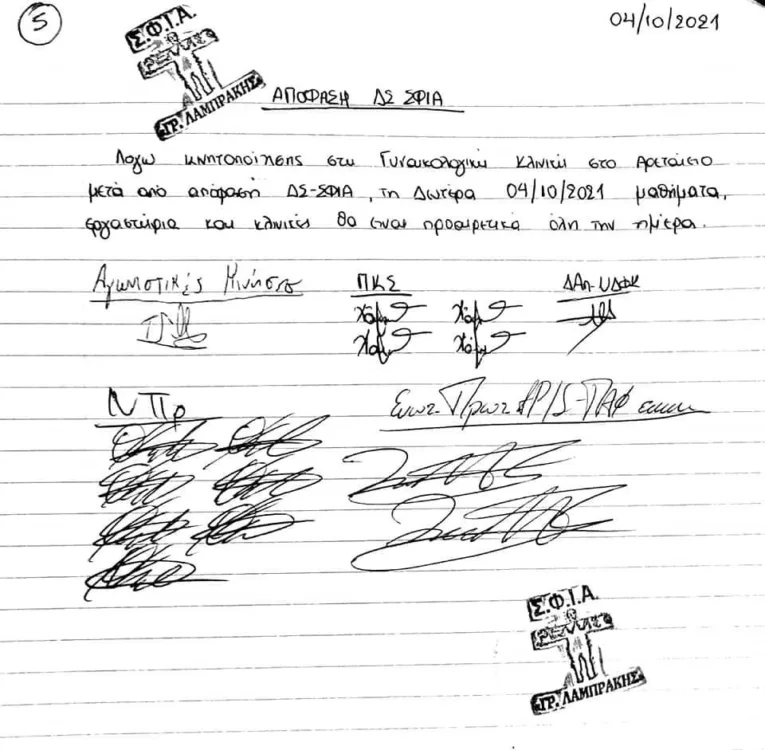 5
04/10/2021
Σ.Φ.Ι.Α.
ΓΡ. ΛΑΜΠΡΑΚΗΣ
ΑΠΟΦΑΣΗ ΔΣ ΣΦΙΑ
Λόγω κινητοποίησης στη Γυναικολογική κλινική στο Αρεταίειο
μετά από απόφαση ΔΣ-ΣΦΙΑ, τη Δευτέρα 04/10/2021 μαθήματα,
εργαστήρια και κλινικές θα είναι προαιρετικά όλη την ημέρα.
Αγωνιστικές Κινήσεις ΠΚΣ ΔΑΠ-ΝΔΦΚ
ΝΠρ Ενωτ. Πρωτ ΑΡ/Σ-ΠΑΦ
Σ.Φ.Ι.Α.
ΓΡ. ΛΑΜΠΡΑΚΗΣ